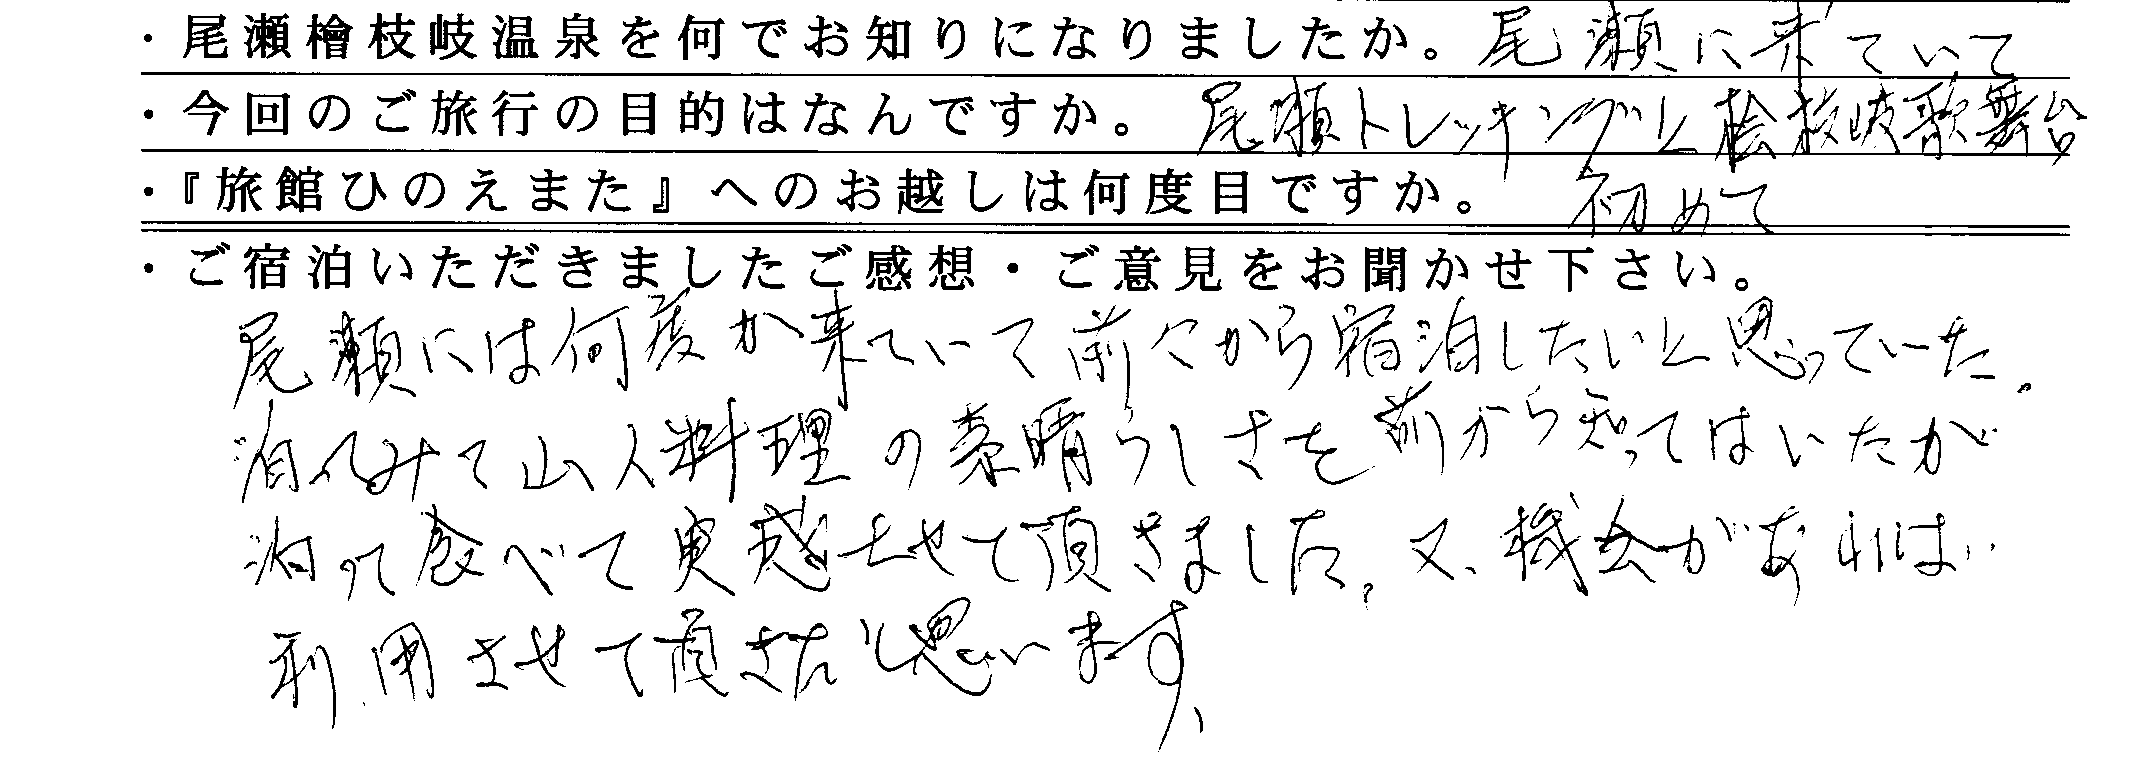 ・尾瀬檜枝岐温泉を何でお知りになりましたか。尾瀬に来ていて
・今回のご旅行の目的はなんですか。尾瀬トレッキングと桧枝岐歌舞台
・『旅館ひのえまた』へのお越しは何度目ですか。初めて
・ご宿泊いただきましたご感想・ご意見をお聞かせ下さい。
尾瀬には何度か来ていて前々から宿泊したいと思っていた。
泊てみて山人料理の素晴らしさを前から知ってはいたが
泊って食べて実感させて頂きました。又、機会があれば
利用させて頂きたと思います、